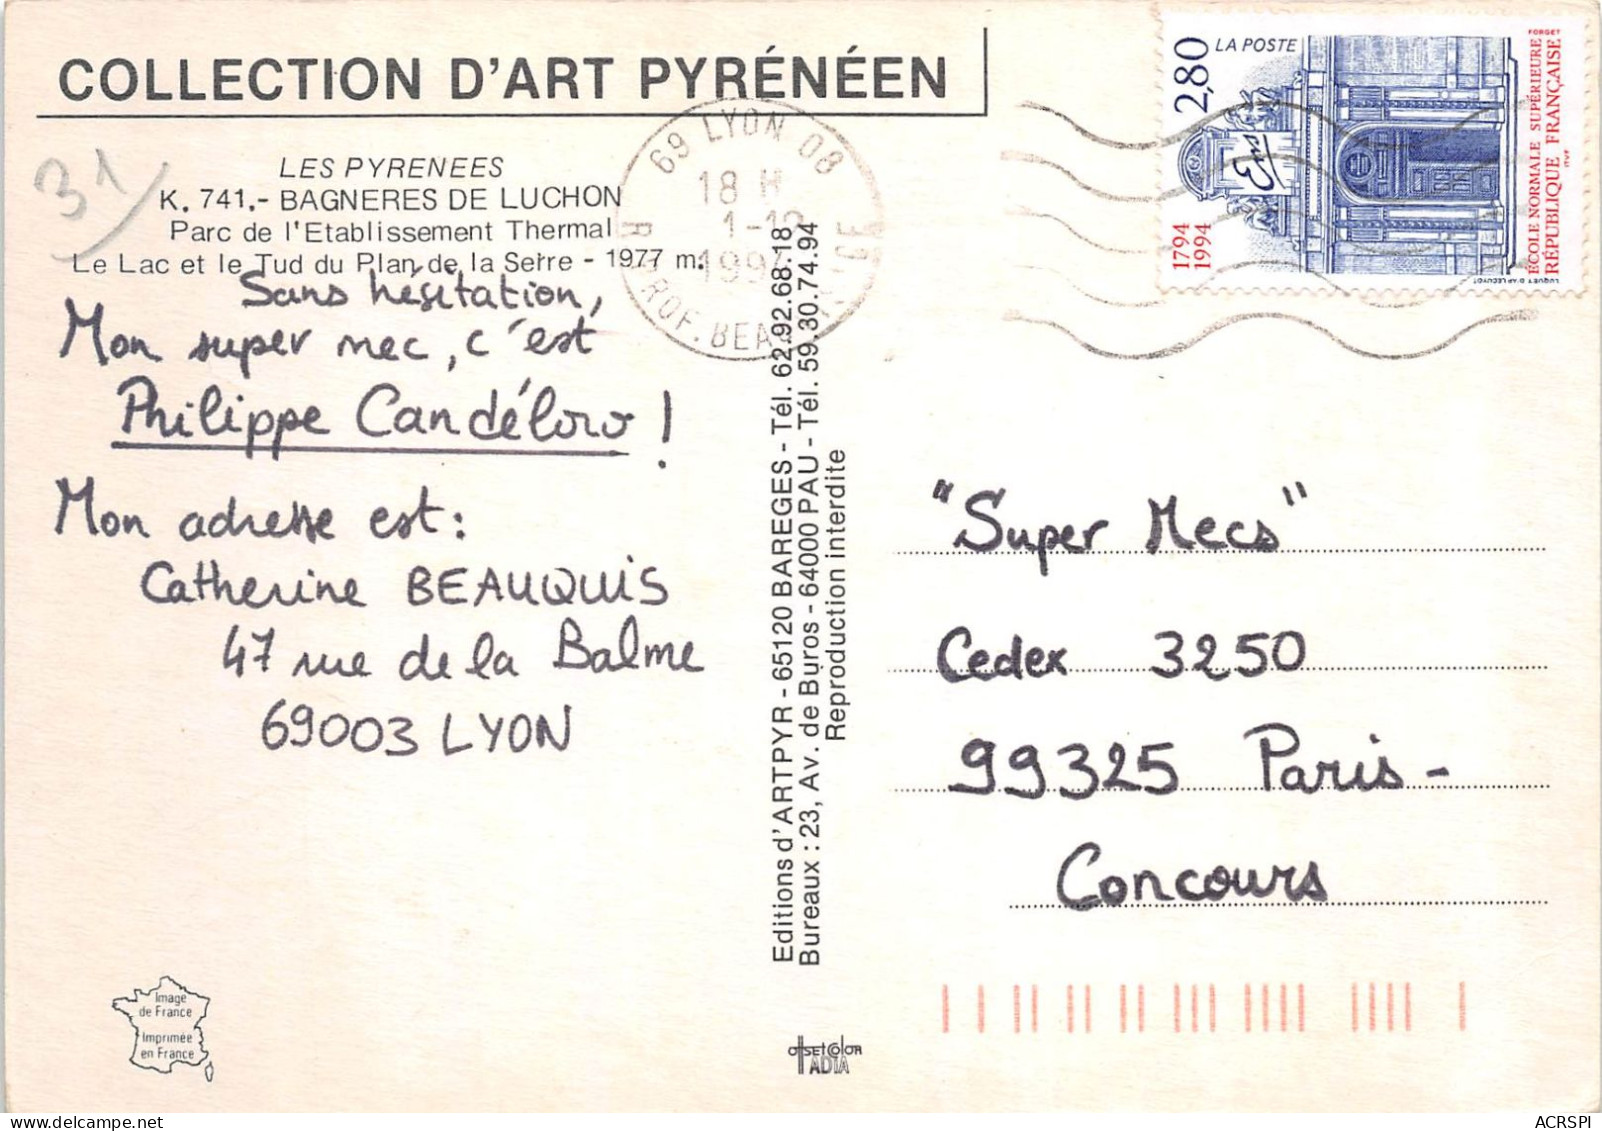 COLLECTION D'ART PYRÉNÉEN
31
LES PYRENEES
K. 741.- BAGNERES DE LUCHON
Parc de l'Etablissement Thermal
Le Lac et le Tud du Plan de la Serre - 1977 m.
Sans hésitation,
Mon super mec, c'est
Philippe Candéloro !
Mon adresse est :
Catherine BEAUQUIS
47 rue de la Balme
69003 LYON
Image
de France
Imprimée
en France
69 LYON 08
18 H
1-12
R. PROF. BEA
Editions d'ARTPYR - 65120 BAREGES - Tél. 62.92.68.18
Bureaux : 23, Av. de Buros - 64000 PAU - Tél. 59.30.74.94
Reproduction interdite
OffSETCOlOR
TADIA
2,80
LA POSTE
Ens
1794
1994
FORGET
ÉCOLE NORMALE SUPÉRIEURE
RÉPUBLIQUE FRANÇAISE
ITVF
LUQUET D'APLECUYOT
"Super Mecs"
Cedex 3250
99325 Paris -
Concours
ACRSPI